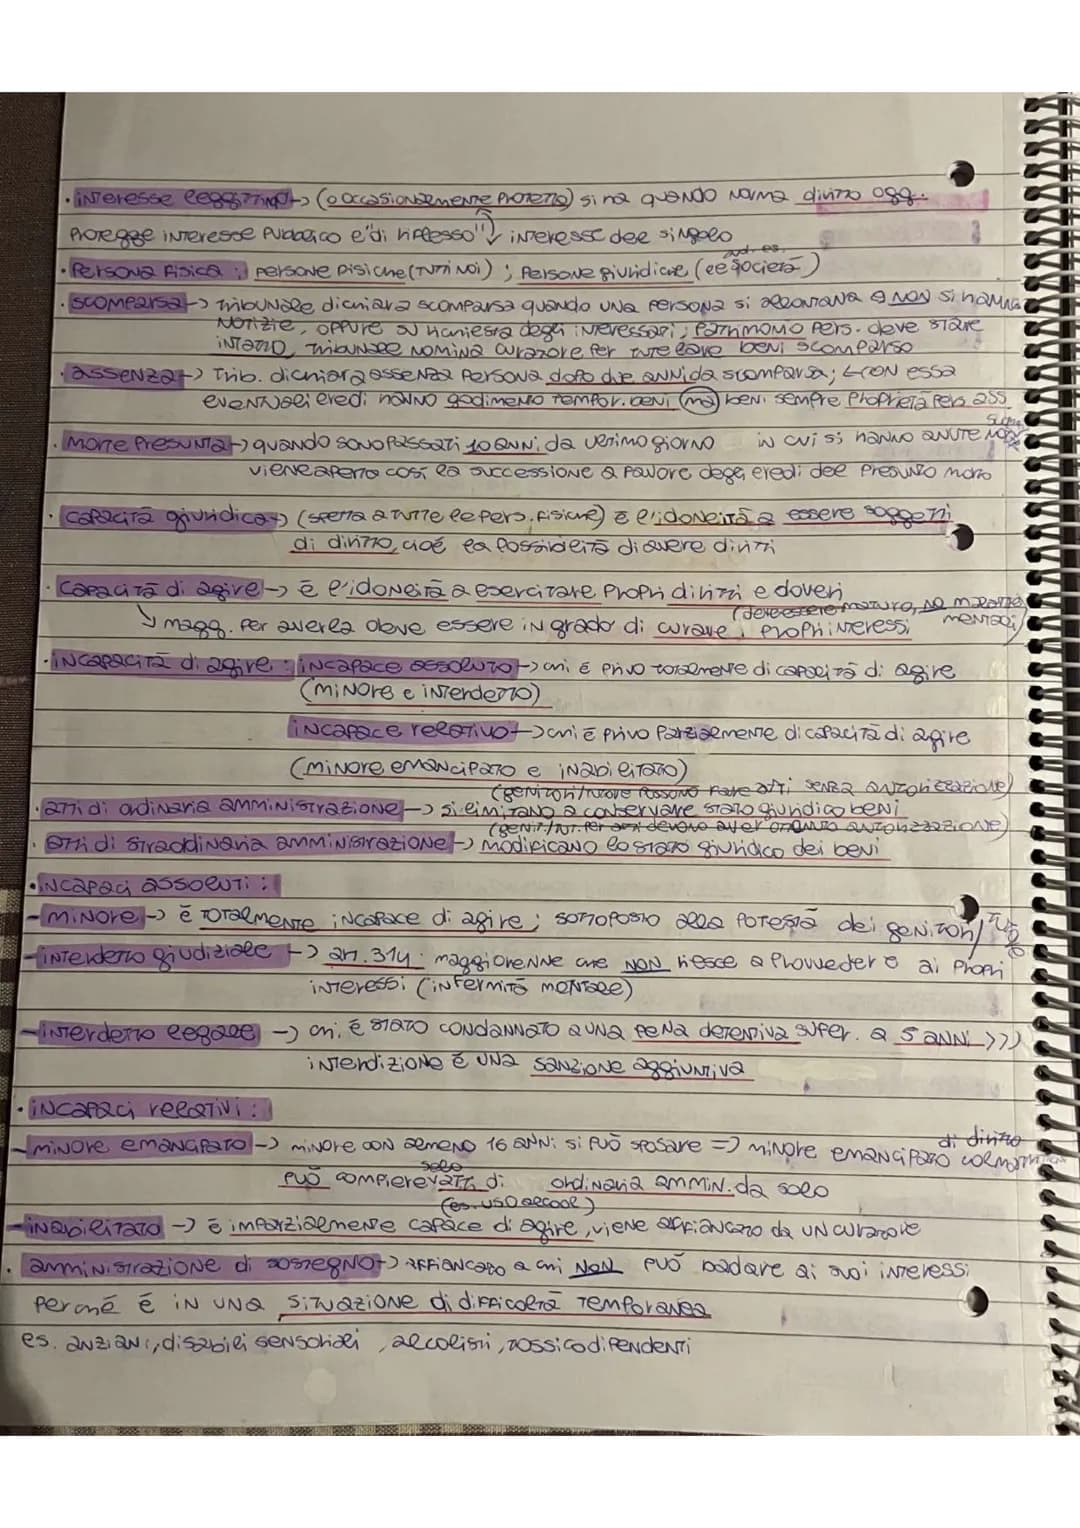 · interesse leggittimo -> (o occasionalmente protetto) si ha quando norma diritto ogg.
protegge interesse pubblico e "di riflesso" interesse del singolo
ad es.
· Persona fisica : persone fisiche (tutti noi) ; persone giuridiche (le società)
· scomparsa -> tribunale dichiara scomparsa quando una persona si allontana e NON si hanno
notizie, oppure su richiesta degli interessati; patrimonio pers. deve stare
intatto, tribunale nomina curatore per tutelare beni scomparso
· assenza -> Trib. dichiara assenza persona dopo due anni da scomparsa; con essa
eventuali eredi hanno godimento tempor. beni (ma) beni sempre proprietà pers ass
· morte presunta -> quando sono passati 10 anni da ultimo giorno in cui si hanno avute
viene aperta così la successione a favore degli eredi del presunto morto
· capacità giuridica -> (spetta a tutte le pers. fisiche) è l'idoneità a essere soggetti
di diritto, cioè la possibilità di avere diritti
· capacità di agire -> è l'idoneità a esercitare propri diritti e doveri
(deve essere maturo, no malattie mentali)
magg. per averla deve essere in grado di curare i propri interessi
· incapacità di agire : incapace assoluto -> chi è privo totalmente di capacità di agire
(minore e interdetto)
incapace relativo -> chi è privo parzialmente di capacità di agire
(minore emancipato e inabilitato)
(genitori/tutore possono fare atti senza autorizzazione)
· atti di ordinaria amministrazione -> si limitano a conservare stato giuridico beni
(genit./tut. per devono aver autorizzazione)
· atti di straordinaria amministrazione -> modificano lo stato giuridico dei beni
· incapaci assoluti :
- minore -> è totalmente incapace di agire; sottoposto alla potestà dei genitori/
- interdetto giudiziale -> art. 314: maggiorenne che NON riesce a provvedere ai propri
interessi (infermità mentale)
- interdetto legale -> chi è stato condannato a una pena detentiva super. a 5 anni >>>
interdizione è una sanzione aggiuntiva
· incapaci relativi :
- minore emancipato -> minore con almeno 16 anni: si può sposare => minore emancipato di diritto
può compiere solo atti di ordinaria ammin. da solo
(es. uso alcool)
- inabilitato -> è imparzialmente capace di agire, viene affiancato da un curatore
· amministrazione di sostegno -> affiancato a chi NON può badare ai suoi interessi
perché è in una situazione di difficoltà temporanea
es. anziani, disabili sensoriali, alcolisti, tossicodipendenti